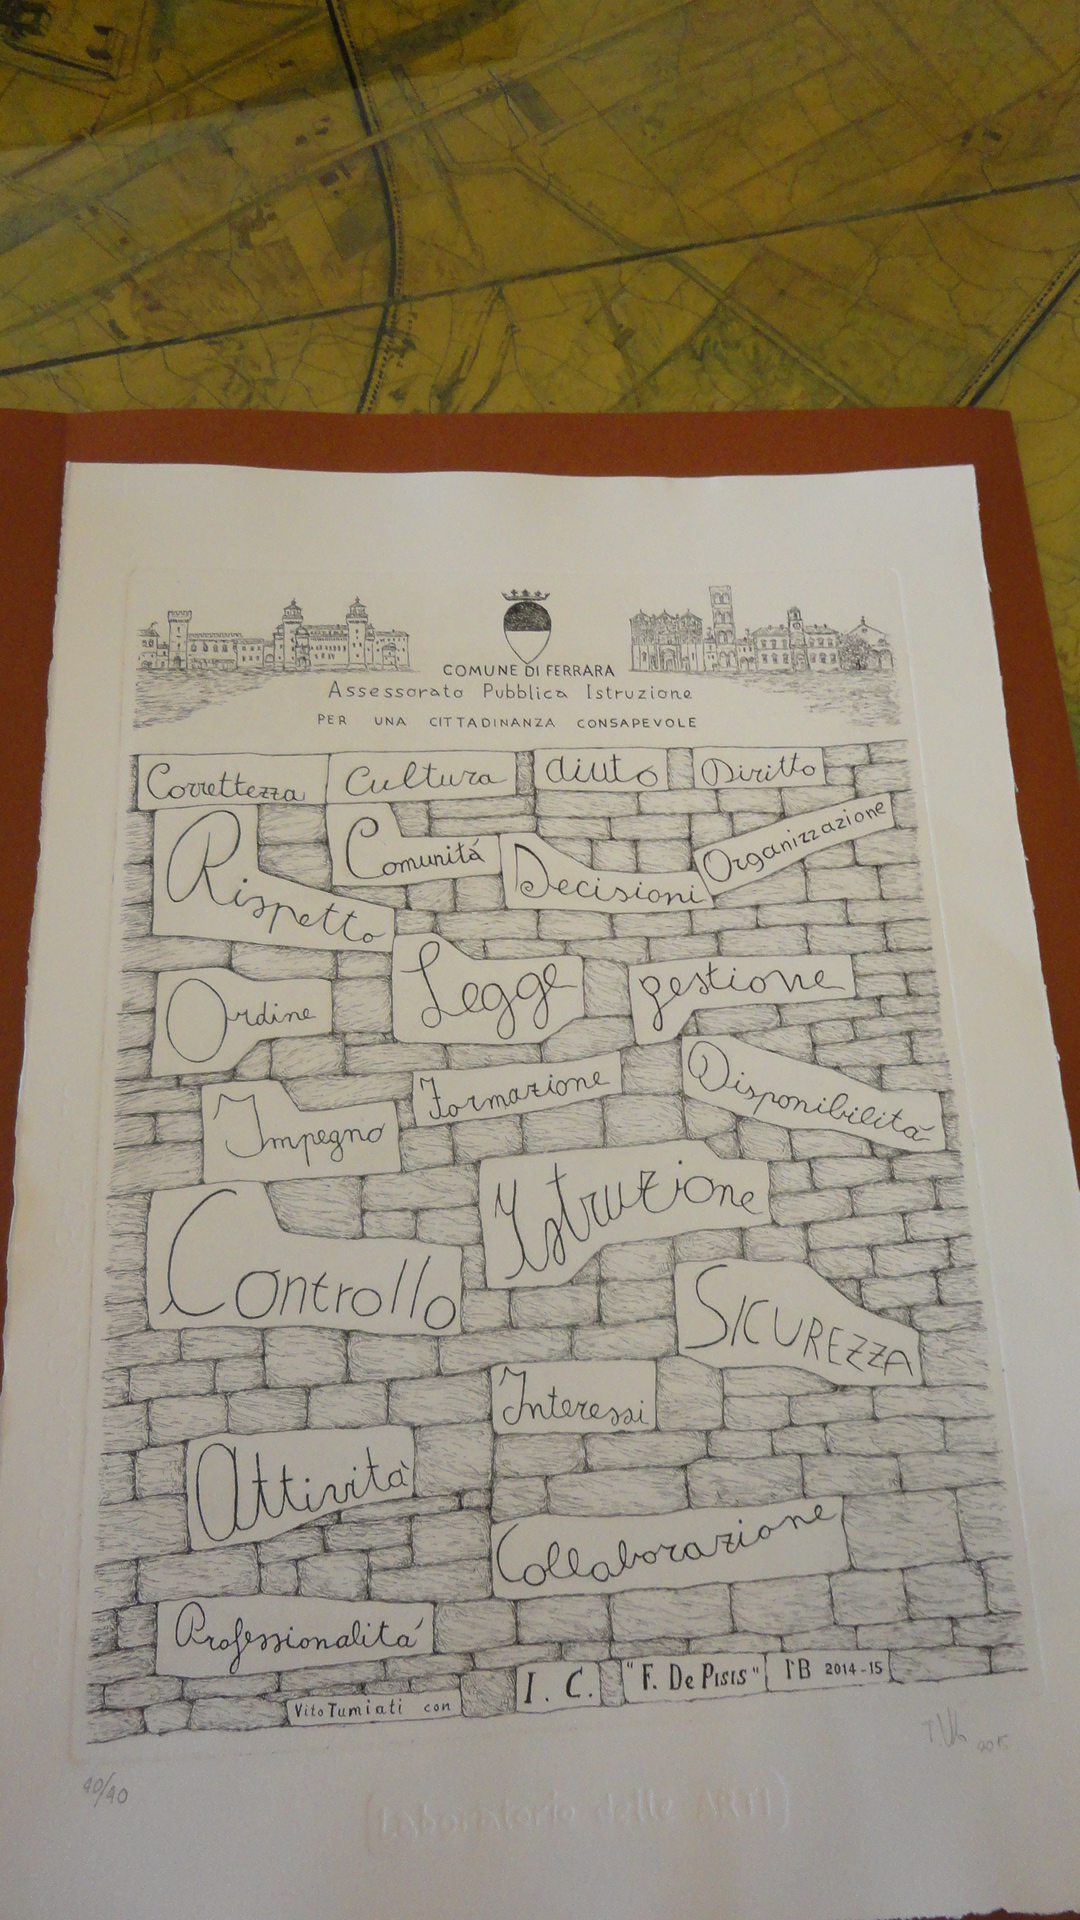 COMUNE DI FERRARA
Assessorato Pubblica Istruzione
PER UNA CITTADINANZA CONSAPEVOLE
Correttezza
Cultura
aiuto
Diritto
Rispetto
Comunità
Decisioni
Organizzazione
Ordine
Legge
gestione
Impegno
Formazione
Disponibilità
Controllo
Istruzione
SICUREZZA
Interessi
Attività
Collaborazione
Professionalità
Vito Tumiati con
I. C.
"F. De PISIS"
1ªB 2014-15
40/40
(Laboratorio delle ARTI)